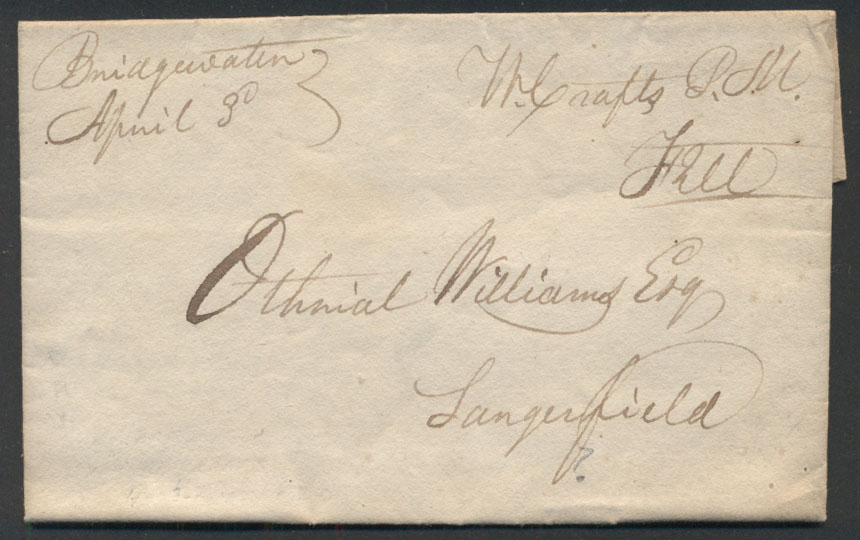 Bridgewater
April 3d
W. Crafts P. M.
Free
Othniel Williams Esq
Sangerfield
?